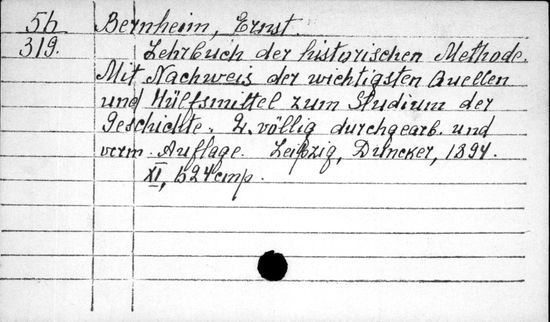 5b Bernheim, Ernst.
319. Lehrbuch der historischen Methode.
Mit Nachweis der wichtigsten Quellen
und Hülfsmittel zum Studium der
Geschichte. 2. völlig durchgearb. und
verm. Auflage. Leipzig, Duncker, 1894.
XI, 624 cmp.